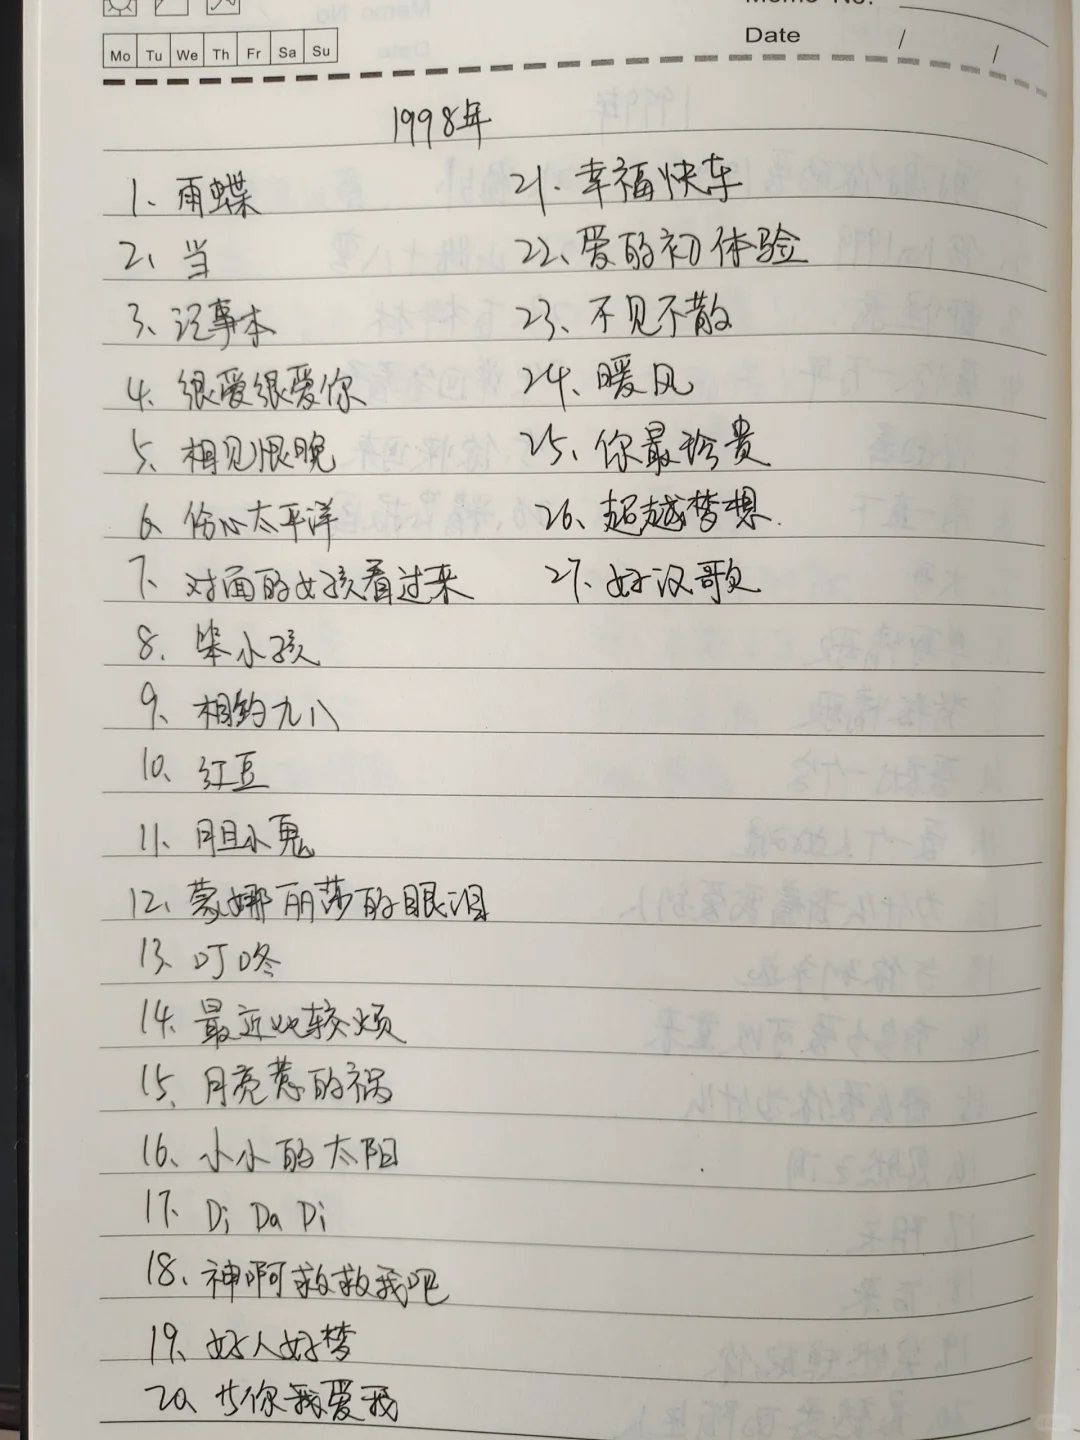 Memo No.
Date / /
Mo Tu We Th Fr Sa Su
1998年
1、雨蝶
2、当
3、记事本
4、很爱很爱你
5、相见恨晚
6、伤心太平洋
7、对面的女孩看过来
8、笨小孩
9、相约九八
10、红豆
11、胆小鬼
12、蒙娜丽莎的眼泪
13、叮咚
14、最近比较烦
15、月亮惹的祸
16、小小的太阳
17、Di Da Di
18、神啊救救我吧
19、好人好梦
20、当你我爱我
21、幸福快车
22、爱的初体验
23、不见不散
24、暖风
25、你最珍贵
26、超越梦想.
27、好汉歌